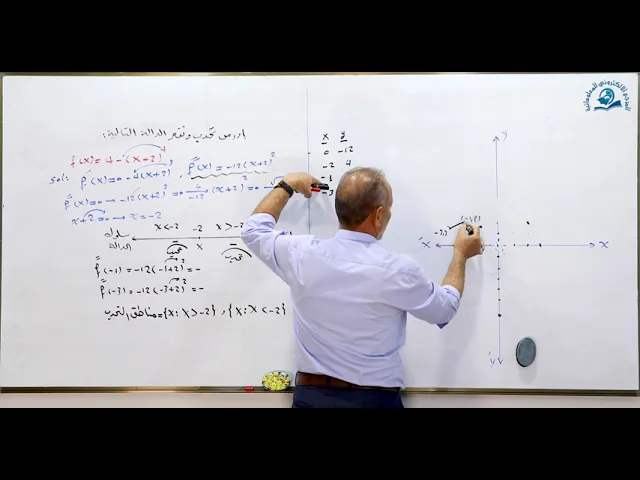 ادرس تحدب وتقعر الدالة التالية:
f(x) = 4 - (x+2)⁴
sol: f'(x) = 0 - 4(x+2)³, f''(x) = -12(x+2)²
f''(x) = 0 → -12(x+2)² = 0 (x+2)² = 0
x+2 = 0 → x = -2
x < -2 -2 x > -2
سلوك الدالة
تحدب x تحدب
f''(-1) = -12(-1+2)² = -
f''(-3) = -12(-3+2)² = -
مناطق التحدب = {x: x > -2} , {x: x < -2}
x y
0 -12
-2 4
-1
-3
y
x' x
y'
المرجع الالكتروني للمعلوماتية